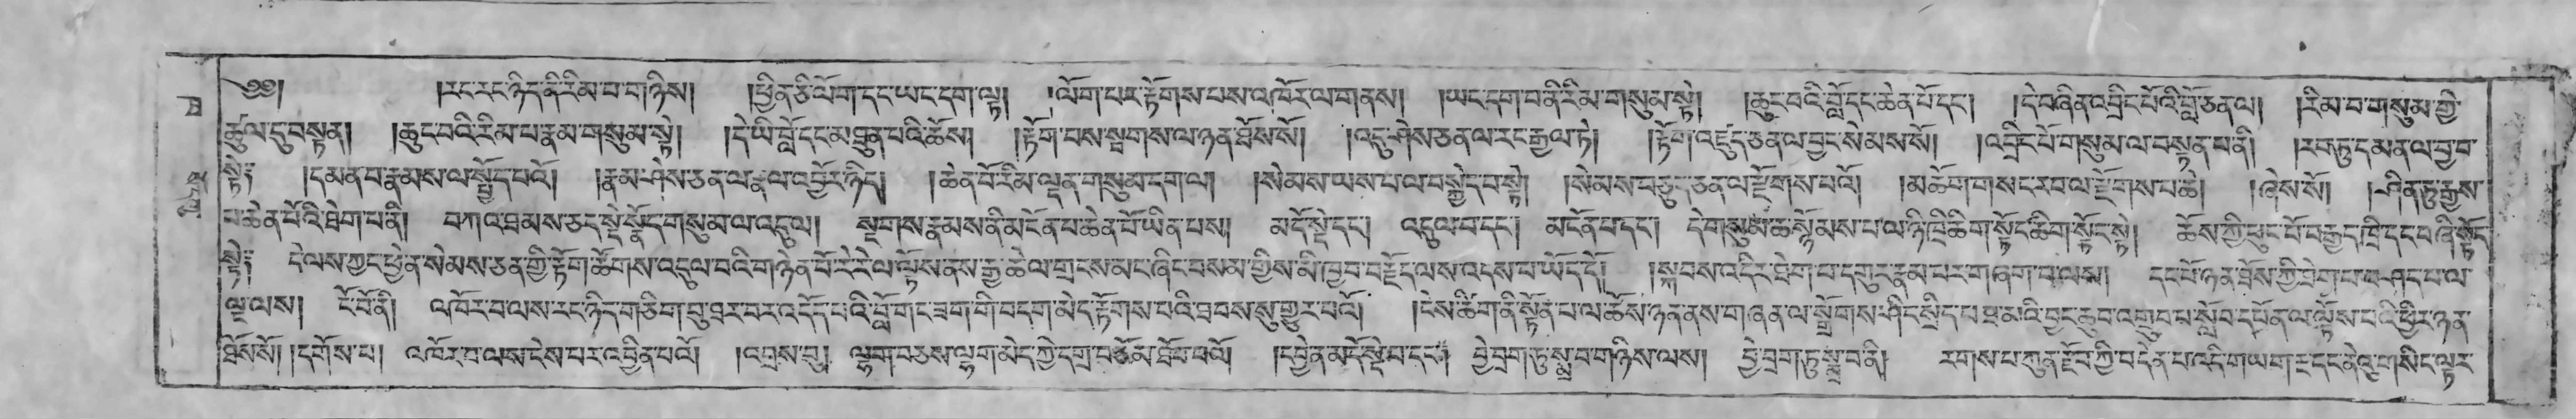 ༄༅། །རང་རང་ཉིད་ནི་རིམ་པ་གཉིས། །ཕྱིན་ཅི་ལོག་དང་ཡང་དག་ལྟ། །ལོག་པར་རྟོགས་པས་འཁོར་ལ་གནས། །ཡང་དག་པ་ནི་རིམ་གསུམ་སྟེ། །ཆུང་བའི་བློ་དང་ཆེན་པོ་དང་། །དེ་བཞིན་འབྲིང་པོའི་བློ་ཅན་ལ། །རིམ་པ་གསུམ་གྱི་
ཚུལ་དུ་བསྟན། །ཆུང་བའི་རིམ་པ་རྣམ་གསུམ་སྟེ། །དེ་ཡི་བློ་དང་མཐུན་པའི་ཆོས། །རྟོག་པས་སྦགས་ལ་ཉན་ཐོས་སོ། །འདུ་ཤེས་ཅན་ལ་རང་རྒྱལ་ཏེ། །རྟོག་འཛུད་ཅན་ལ་བྱང་སེམས་སོ། །འབྲིང་པོ་གསུམ་ལ་བསྟན་པ་ནི། །རབ་ཏུ་དམན་ལ་བྱ་བ་
སྟེ༔ །དམན་པ་རྣམས་ལ་སྤྱོད་པའོ། །རྣམ་ཤེས་ཅན་ལ་རྣལ་འབྱོར་ཉིད། །ཆེན་པོ་རིམ་ལྡན་གསུམ་དག་ལ། །སེམས་ཡས་པ་ལ་བསྐྱེད་པ་སྟེ། །སེམས་བཅུད་ཅན་ལ་རྫོགས་པའོ། །མཆོག་གསང་རབ་ལ་རྫོགས་པ་ཆེ། །ཞེས་སོ། །ཤིན་ཏུ་རྒྱས་
པ་ཆེན་པོའི་ཐེག་པ་ནི། བཀའ་ཐམས་ཅད་སྡེ་སྣོད་གསུམ་ལ་འདུལ། སྔགས་རྣམས་ནི་མངོན་པ་ཆེན་པོ་ཡིན་པས། མདོ་སྡེ་དང་། འདུལ་བ་དང་། མངོན་པ་དང་། དེ་གསུམ་ཆ་སྙོམས་པ་ལ་ཉི་ཁྲི་ཆིག་སྟོང་ཆིག་སྟོང་སྟེ། ཆོས་ཀྱི་ཕུང་པོ་བརྒྱད་ཁྲི་དང་བཞི་སྟོད་
སྟེ༔ དེ་ལས་ཀྱང་ཕྱེན་སེམས་ཅན་གྱི་རྟོག་ཚོགས་འདུལ་བའི་གཉེན་པོ་རེ་རེ་ལ་ལྟོས་ནས་རྒྱ་ཆེ་ལ་གྲངས་མང་ཞིང་བསམ་གྱིས་མི་ཁྱབ་བརྗོད་ལས་འདས་པ་ཡོད་དོ། །སྐབས་འདིར་ཐེག་པ་དགུར་རྣམ་པར་གཞག་པ་ལས། དང་པོ་ཉན་ཐོས་ཀྱི་ཐེག་པ་བཤད་པ་ལ་
ལྔ་ལས། ངོ་བོ་ནི། འཁོར་བ་ལས་རང་ཉིད་གཅིག་བུ་ཐར་བར་འདོད་པའི་བློ་གང་ཟག་གི་བདག་མེད་རྟོགས་པའི་ཐབས་སུ་གྱུར་པའོ། །ངེས་ཚིག་ནི་སྟོན་པ་ལ་ཆོས་ཉན་ནས་གཞན་ལ་སྒྲོགས་ཤིང་སྲིད་པ་ཐ་མའི་བྱང་ཆུབ་འགྲུབ་པ་སློབ་དཔོན་ལ་ལྟོས་པའི་ཕྱིར་ཉན་
ཐོས་སོ། །དགོས་པ། འཁོར་བ་ལས་ངེས་པར་འབྱིན་པའོ། །འབྲས་བུ། ལྷག་བཅས་ལྷག་མེད་ཀྱི་དགྲ་བཅོམ་ཐོབ་པའོ། །དབྱེ་ན་མདོ་སྡེ་པ་དང་། བྱེ་བྲག་ཏུ་སྨྲ་བ་གཉིས་ལས། བྱེ་བྲག་ཏུ་སྨྲ་བ་ནི། རགས་པ་ཀུན་རྫོབ་ཀྱི་བདེན་པ་